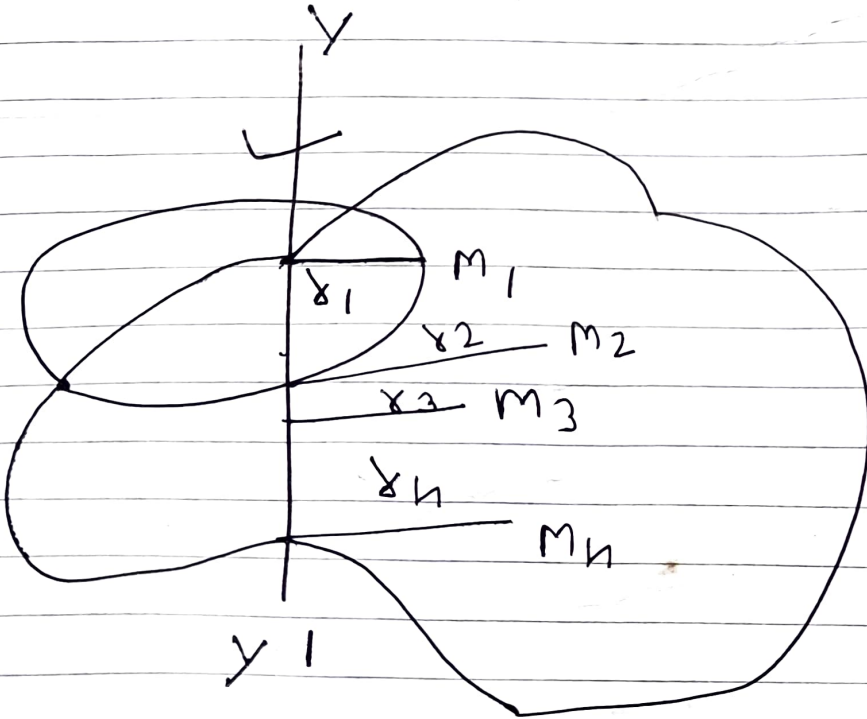 Y
r1 M1
r2 M2
r3 M3
rn Mn
y1